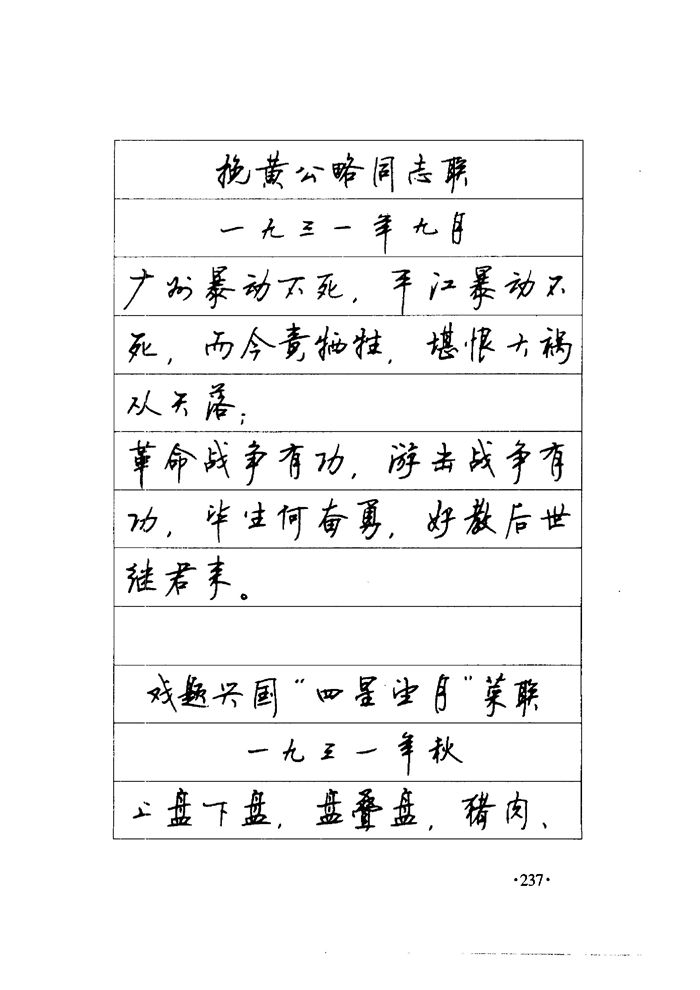 挽黄公略同志联
一九三一年九月
广州暴动不死，平江暴动不
死，而今竟牺牲，堪恨大祸
从天落；
革命战争有功，游击战争有
功，毕生何奋勇，好教后世
继君来。
戏题兴国“四星望月”菜联
一九三一年秋
上盘下盘，盘叠盘，猪肉、
·237·